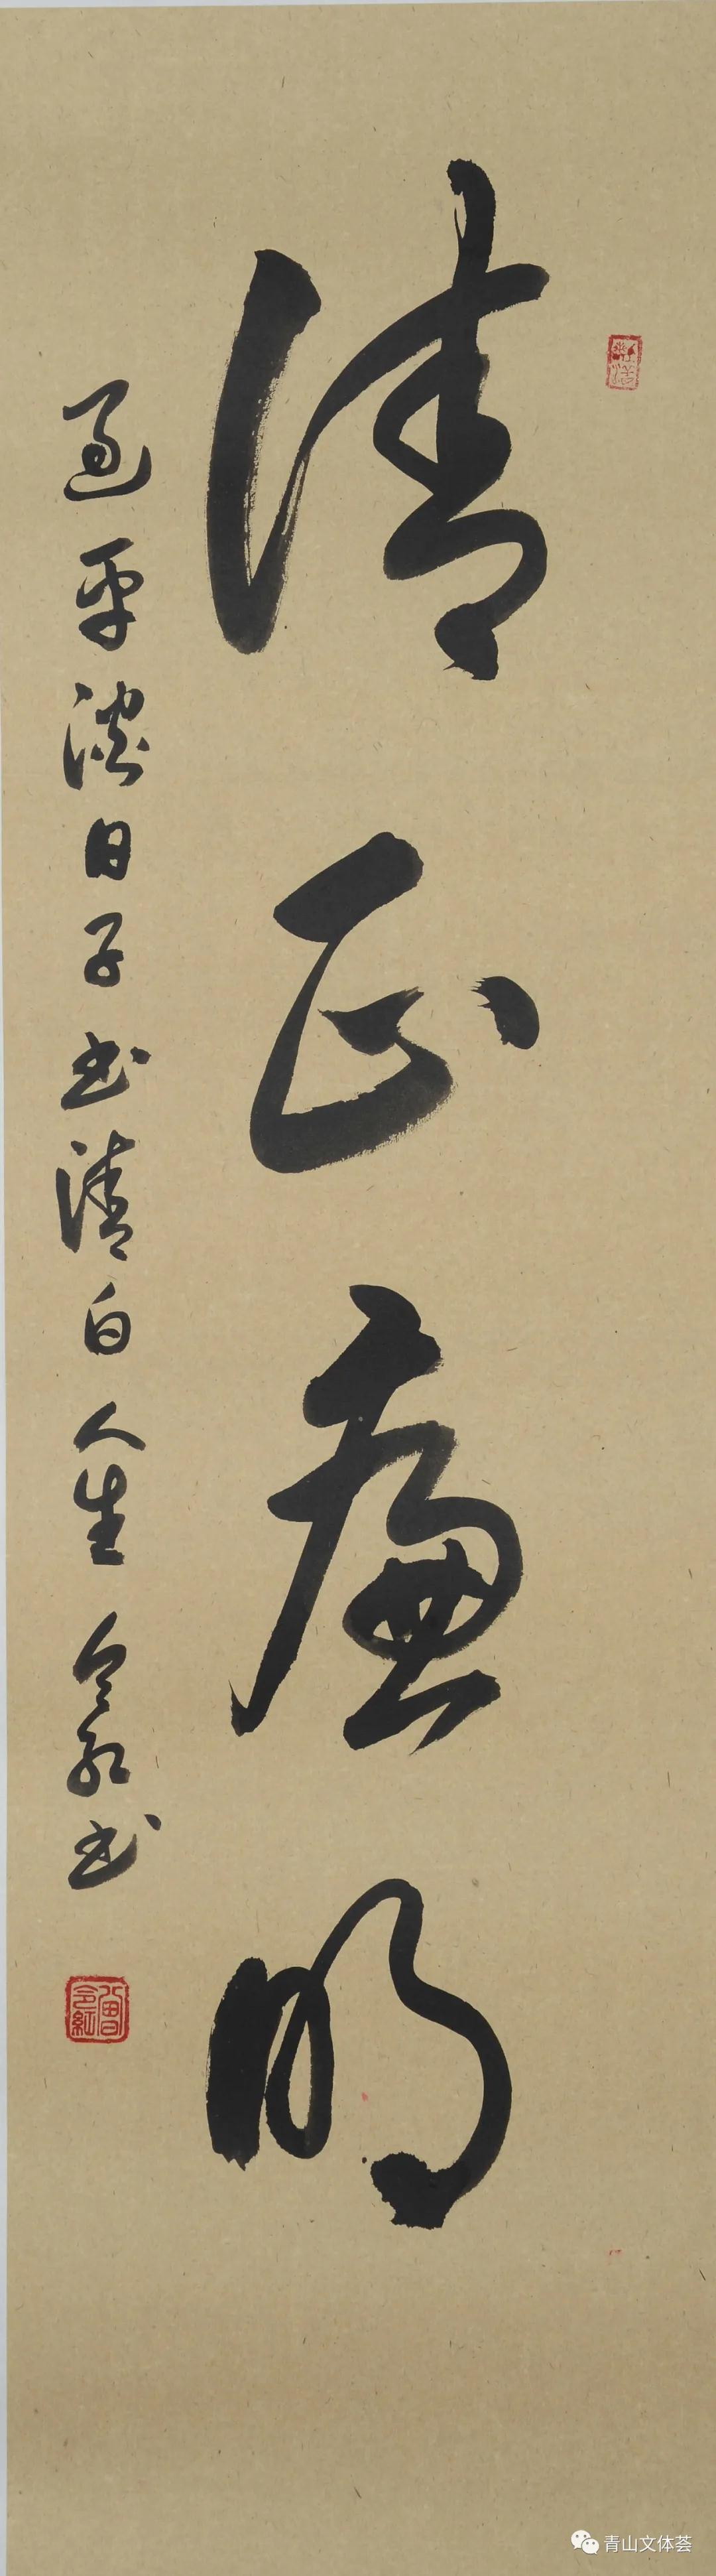 清正廉明
过平淡日子书清白人生 令红书
曾令红
青山文体荟